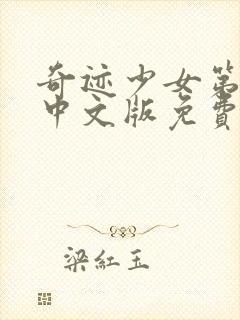 奇迹少女第
中文版免费
梁紅玉